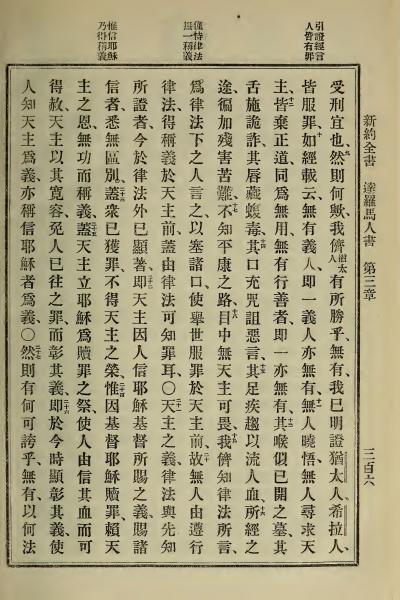 新約全書 達羅馬人書 第三章 三百六
引證經言
人皆有罪
受刑宜也、九然則何歟、我儕猶太人有所勝乎、無有、我已明證猶太人、希拉人、
皆服罪、十如經載云、無有義人、即一義人亦無有、十一無人曉悟、無人尋求天
主、十二皆棄正道、同爲無用、無有行善者、即一亦無有、十三其喉似已開之墓、其
舌施詭詐、其唇藏蝮毒、十四其口充咒詛惡言、十五其足疾趨以流人血、十六所經之
途、徧加殘害苦難、十七不知平康之路、十八目中無天主可畏、十九我儕知律法所言、
僅恃律法
無一稱義
爲律法下之人言之、以塞諸口、使舉世服罪於天主前、二十故無人由遵行
律法、得稱義於天主前、蓋由律法可知罪耳、○二十一天主之義、律法與先知
所證者、今於律法外已顯著、二十二即天主因人信耶穌基督所賜之義、賜諸
惟信耶穌
乃得稱義
信者、悉無區別、二十三蓋衆已獲罪、不得天主之榮、二十四惟因基督耶穌贖罪、賴天
主之恩、無功而稱義、二十五蓋天主立耶穌爲贖罪之祭、使人由信其血而可
得赦、天主以其寬容、免人已往之罪、而彰其義、二十六即於今時顯彰其義、使
人知天主爲義、亦稱信耶穌者爲義、○二十七然則有何可誇乎、無有、以何法